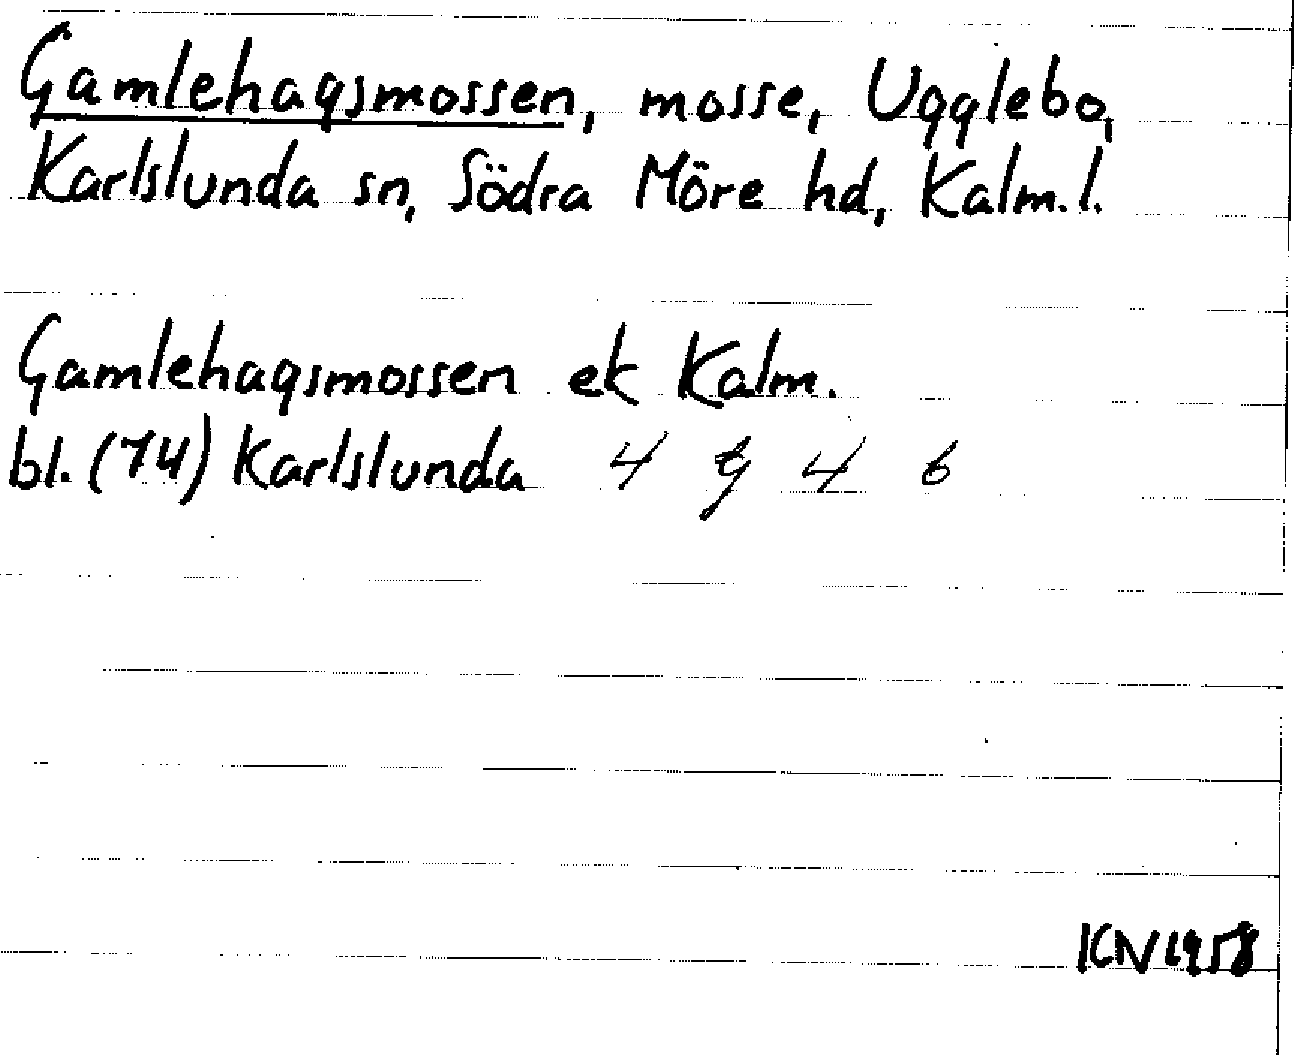 Gamlehagsmossen, mosse, Ugglebo,
Karlslunda sn, Södra Möre hd, Kalm. l.
Gamlehagsmossen ek Kalm.
bl. (14) Karlslunda 4 g 4 b
KN 1958